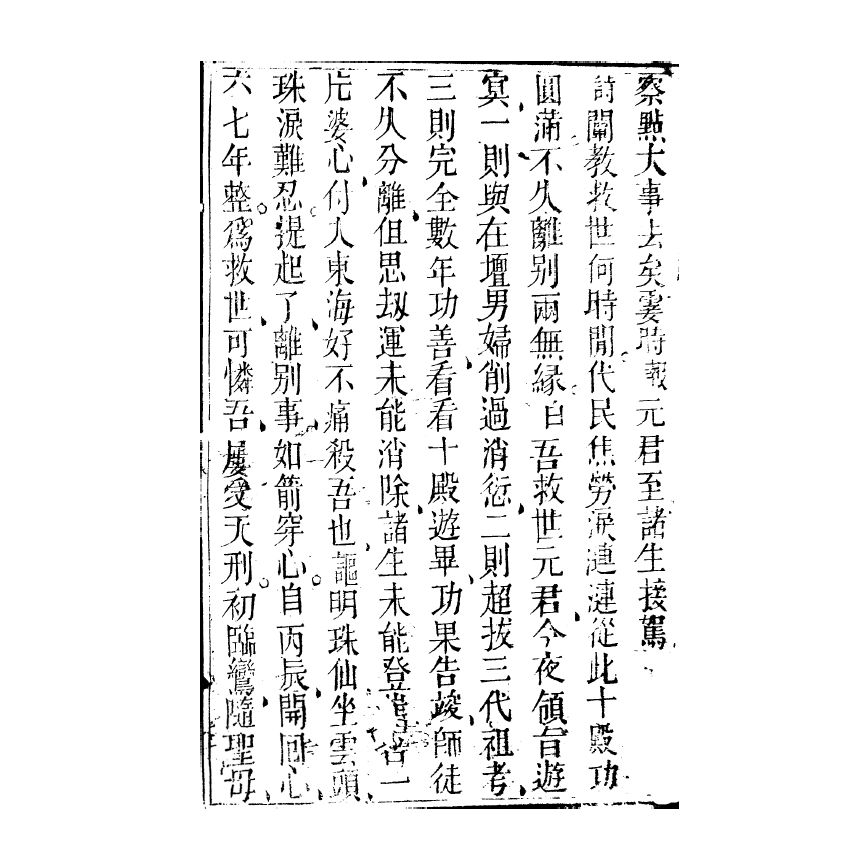 察點大事去矣霎時報元君至諸生接駕
詩闡教救世何時閒代民焦勞淚漣漣從此十殿功
圓滿不久離別兩無緣 吾救世元君今夜領旨遊
冥一則與在壇男婦削過消愆二則超拔三代祖考
三則完全數年功善看看十殿遊畢功果告竣師徒
不久分離但思刼運未能消除諸生未能登 岸一
片婆心付入東海好不痛殺吾也謳明珠仙坐雲頭
珠淚難忍提起了離别事如箭穿心自丙辰開囘心
六七年整爲救世可憐吾屢受天刑初臨鸞隨聖母